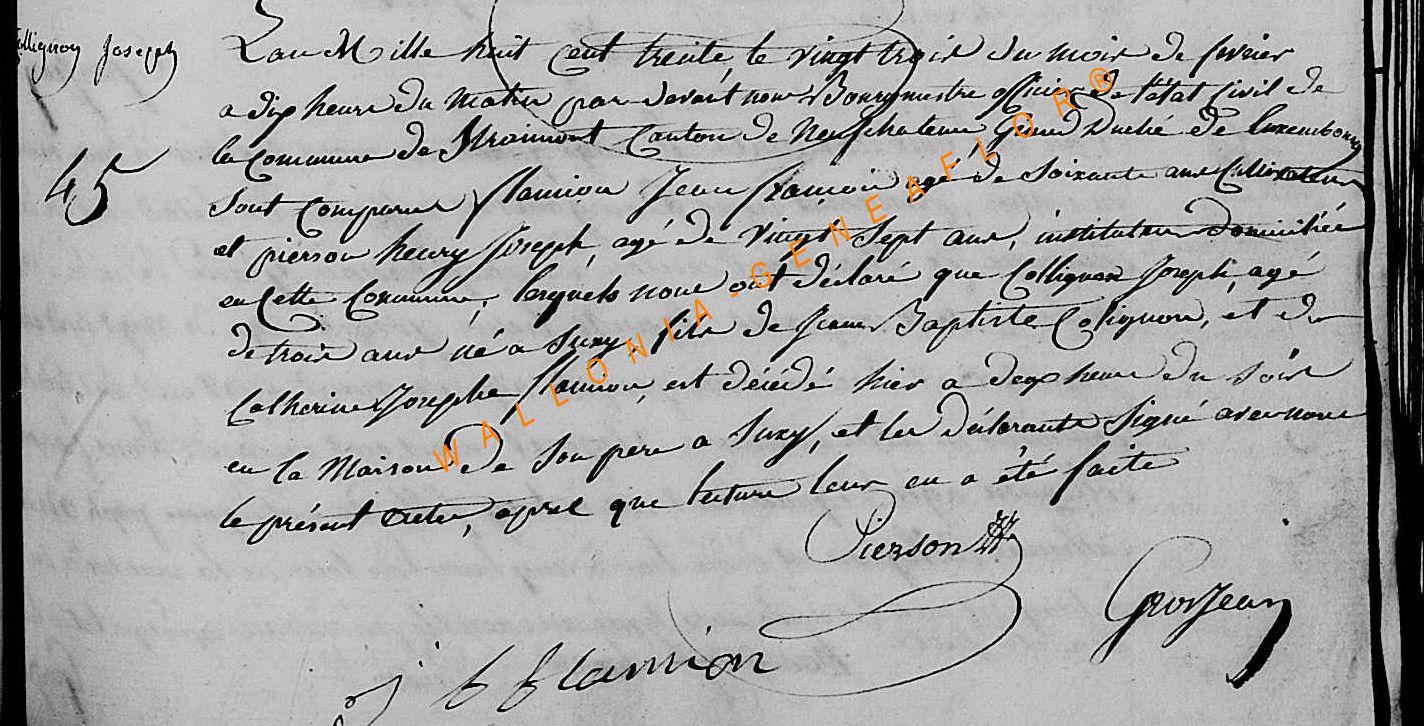 Collignon Joseph
45
L'an Mille huit cent trente, le vingt trois du mois de fevrier
a dix heure du Matin par devant nous Bourgmestre officier de l'état Civil de
la Commune de Straimont Canton de Neufchateau Grand Duché de Luxembourg
sont comparus flamion Jean françois agé de soixante ans Cultivateur
et pierson henry Joseph, agé de vingt Sept ans, instituteur Domiciliés
en Cette Commune, lesquels nous ont déclaré que Collignon Joseph, agé
de trois ans né a Suxy, fils de Jean Baptiste Colignon, et de
Catherine Josephe flamion, est décédé hier a deux heure du soir
en la Maison de son pere a Suxy, et les déclarants Signé avec nous
le présent acte, après que lecture leur en a été faite
Pierson
GrosJean
j f flamion
WALLONIA-GENEAFLOR®